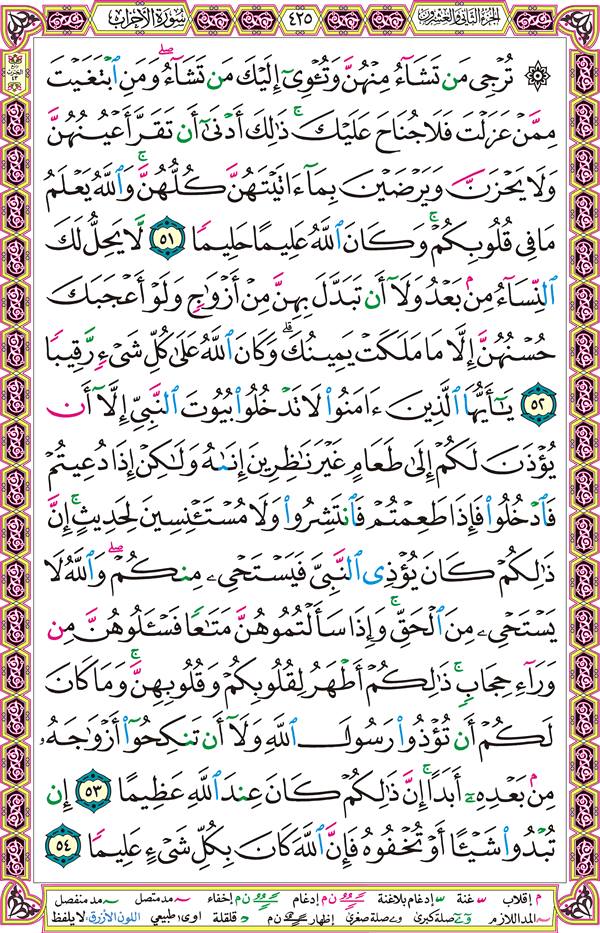 الجزء الثاني والعشرون
٤٢٥
سورة الأحزاب
ربع
الحزب
٤٣
۞ تُرْجِي مَن تَشَآءُ مِنْهُنَّ وَتُـْٔوِىٓ إِلَيْكَ مَن تَشَآءُۖ وَمَنِ ٱبْتَغَيْتَ
مِمَّنْ عَزَلْتَ فَلَا جُنَاحَ عَلَيْكَۚ ذَٰلِكَ أَدْنَىٰٓ أَن تَقَرَّ أَعْيُنُهُنَّ
وَلَا يَحْزَنَّ وَيَرْضَيْنَ بِمَآ ءَاتَيْتَهُنَّ كُلُّهُنَّۚ وَٱللَّهُ يَعْلَمُ
مَا فِى قُلُوبِكُمْۚ وَكَانَ ٱللَّهُ عَلِيمًا حَلِيمًا ٥١ لَّا يَحِلُّ لَكَ
ٱلنِّسَآءُ مِنۢ بَعْدُ وَلَآ أَن تَبَدَّلَ بِهِنَّ مِنْ أَزْوَٰجٍ وَلَوْ أَعْجَبَكَ
حُسْنُهُنَّ إِلَّا مَا مَلَكَتْ يَمِينُكَۗ وَكَانَ ٱللَّهُ عَلَىٰ كُلِّ شَىْءٍ رَّقِيبًا
٥٢ يَـٰٓأَيُّهَا ٱلَّذِينَ ءَامَنُوا۟ لَا تَدْخُلُوا۟ بُيُوتَ ٱلنَّبِىِّ إِلَّآ أَن
يُؤْذَنَ لَكُمْ إِلَىٰ طَعَامٍ غَيْرَ نَـٰظِرِينَ إِنَىٰهُ وَلَـٰكِنْ إِذَا دُعِيتُمْ
فَٱدْخُلُوا۟ فَإِذَا طَعِمْتُمْ فَٱنتَشِرُوا۟ وَلَا مُسْتَـْٔنِسِينَ لِحَدِيثٍۚ إِنَّ
ذَٰلِكُمْ كَانَ يُؤْذِى ٱلنَّبِىَّ فَيَسْتَحْىِۦ مِنكُمْۖ وَٱللَّهُ لَا
يَسْتَحْىِۦ مِنَ ٱلْحَقِّۚ وَإِذَا سَأَلْتُمُوهُنَّ مَتَـٰعًا فَسْـَٔلُوهُنَّ مِن
وَرَآءِ حِجَابٍۚ ذَٰلِكُمْ أَطْهَرُ لِقُلُوبِكُمْ وَقُلُوبِهِنَّۚ وَمَا كَانَ
لَكُمْ أَن تُؤْذُوا۟ رَسُولَ ٱللَّهِ وَلَآ أَن تَنكِحُوٓا۟ أَزْوَٰجَهُۥ
مِنۢ بَعْدِهِۦٓ أَبَدًاۚ إِنَّ ذَٰلِكُمْ كَانَ عِندَ ٱللَّهِ عَظِيمًا ٥٣ إِن
تُبْدُوا۟ شَيْـًٔا أَوْ تُخْفُوهُ فَإِنَّ ٱللَّهَ كَانَ بِكُلِّ شَىْءٍ عَلِيمًا ٥٤
م إقلاب س غنة س إدغام بلاغنة ن م إدغام ن م إخفاء مد متصل مد منفصل
المد اللازم صلة كبرى و ے صلة صغرى إظهار ن م قلقلة اوى طبيعي اللون الأزرق لا يلفظ